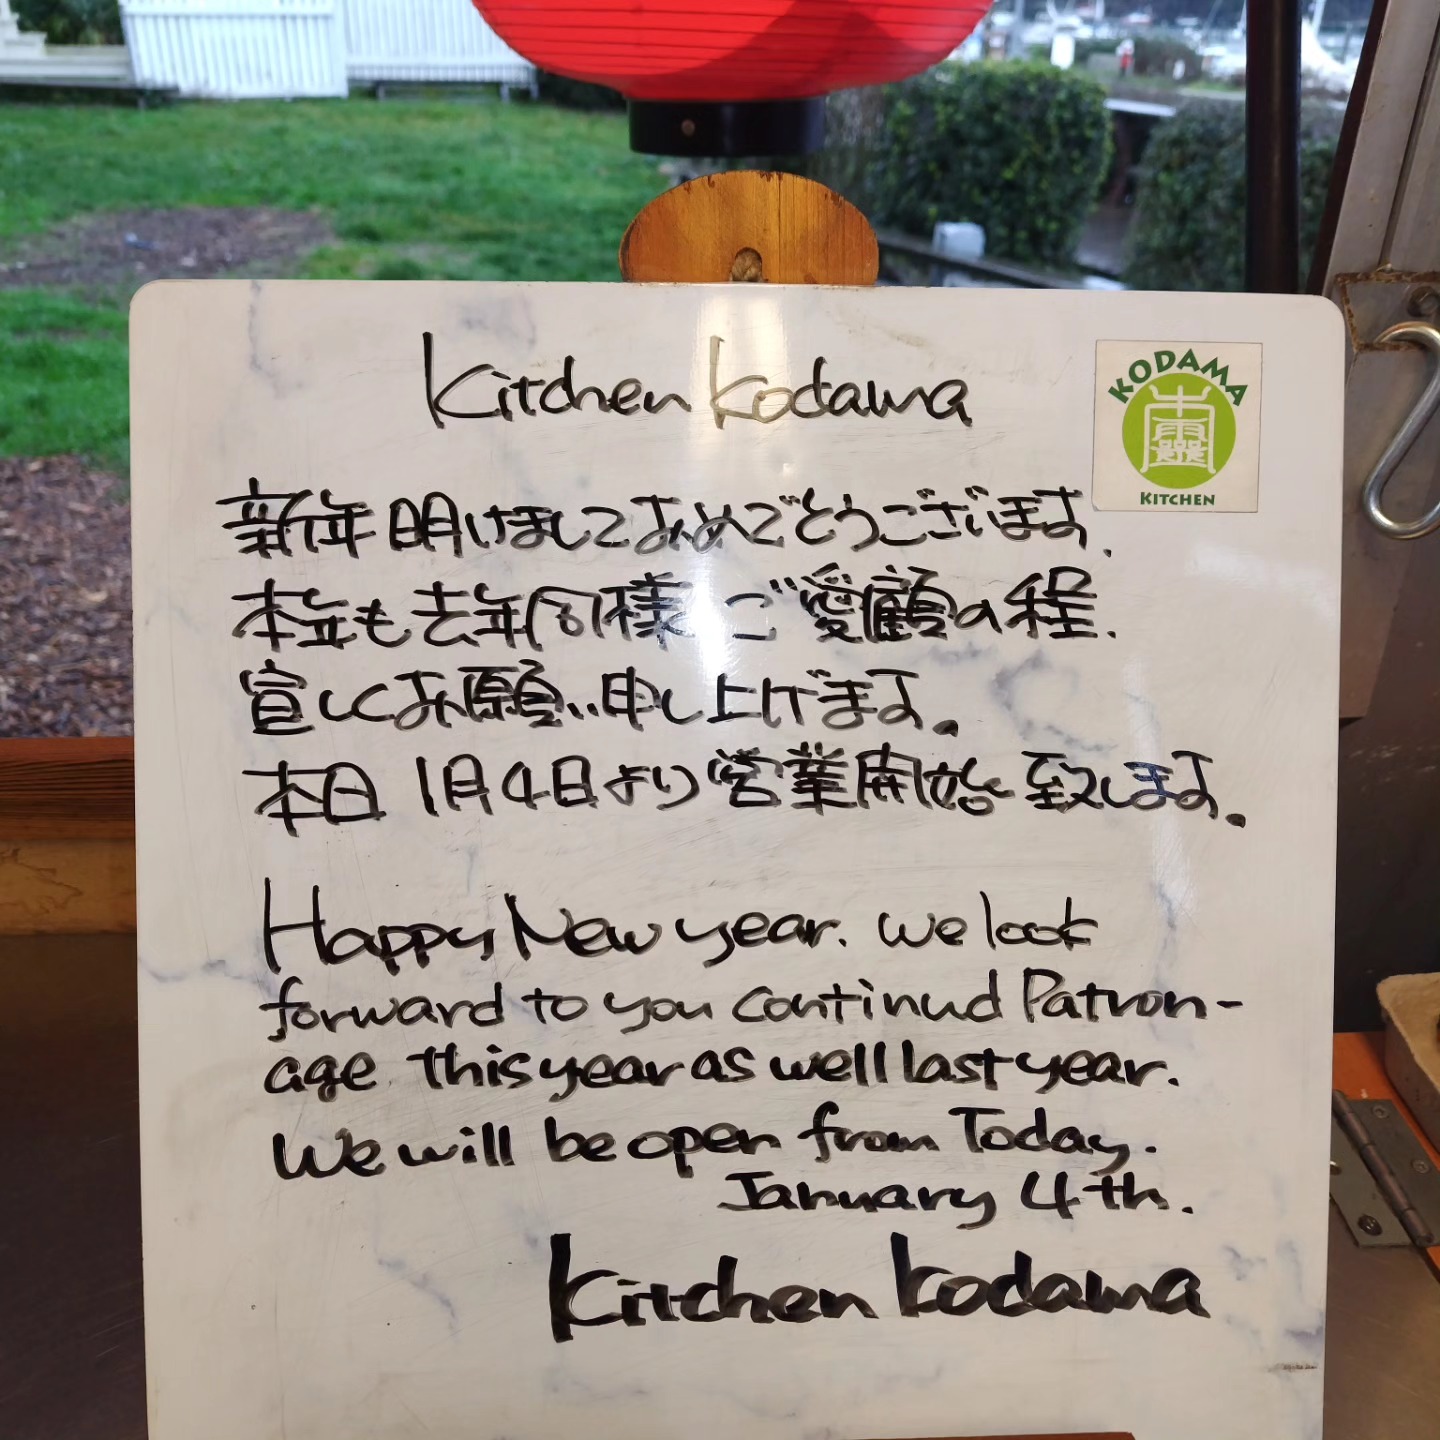 Kitchen Kodama
KODAMA
KITCHEN
新年明けましておめでとうございます.
本年も去年同様ご愛顧の程.
宜しくお願い申し上げます。
本日1月4日より営業開始致します。
Happy New year. We look
forward to you continud Patron-
age this year as well last year.
We will be open from Today.
January 4th.
Kitchen Kodama